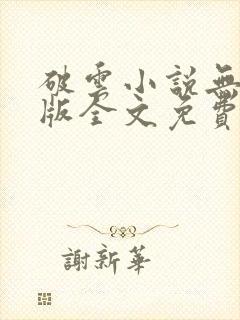 破雲小說無
版全文免費
謝新華